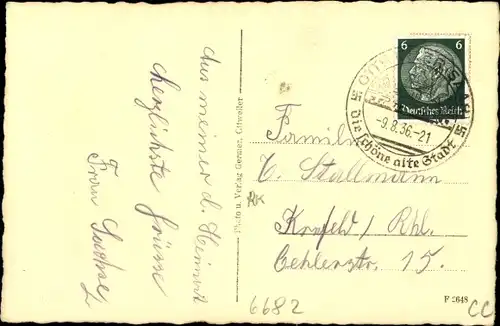 Aus meiner l. Heimat
herzlichste Grüsse
Frau
Photo u. Verlag Ottweiler
6 6
Deutsches Reich
-9.8.36.-21
Die schöne alte Stadt
Familie
C. Stallmann
Krefeld / Rhl.
Oehlerstr. 15.
RK
6682
F 2648
CC